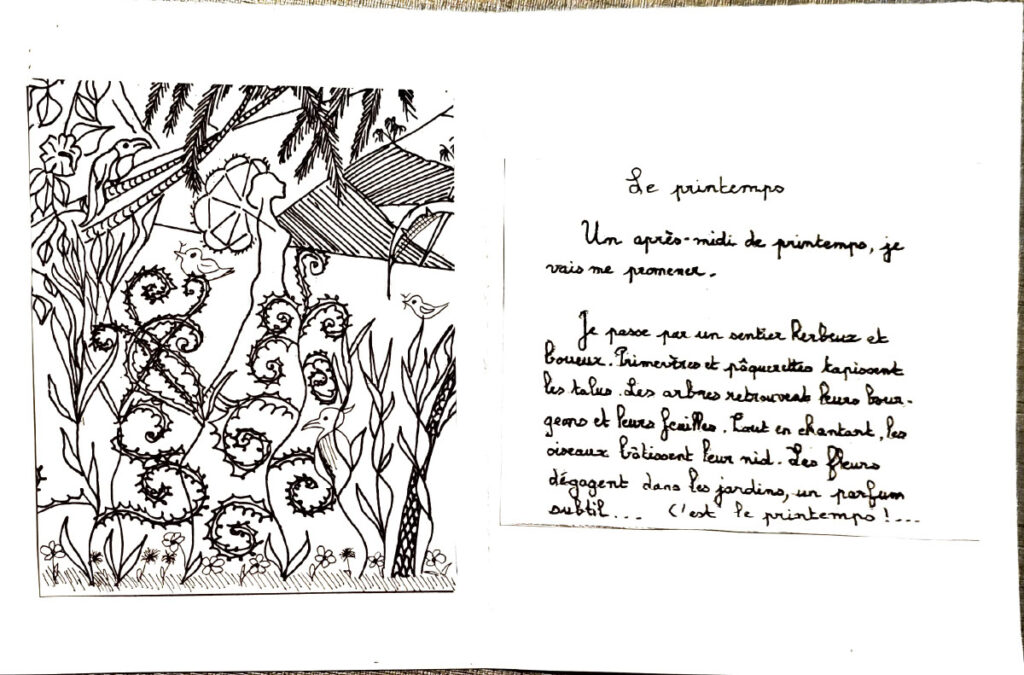 Le printemps
Un après-midi de printemps, je
vais me promener.
Je passe par un sentier herbeux et
boueux. Primevères et pâquerettes tapissent
les talus. Les arbres retrouvent leurs bour-
geons et leurs feuilles. Tout en chantant, les
oiseaux bâtissent leur nid. Les fleurs
dégagent dans les jardins, un parfum
subtil... C'est le printemps !...